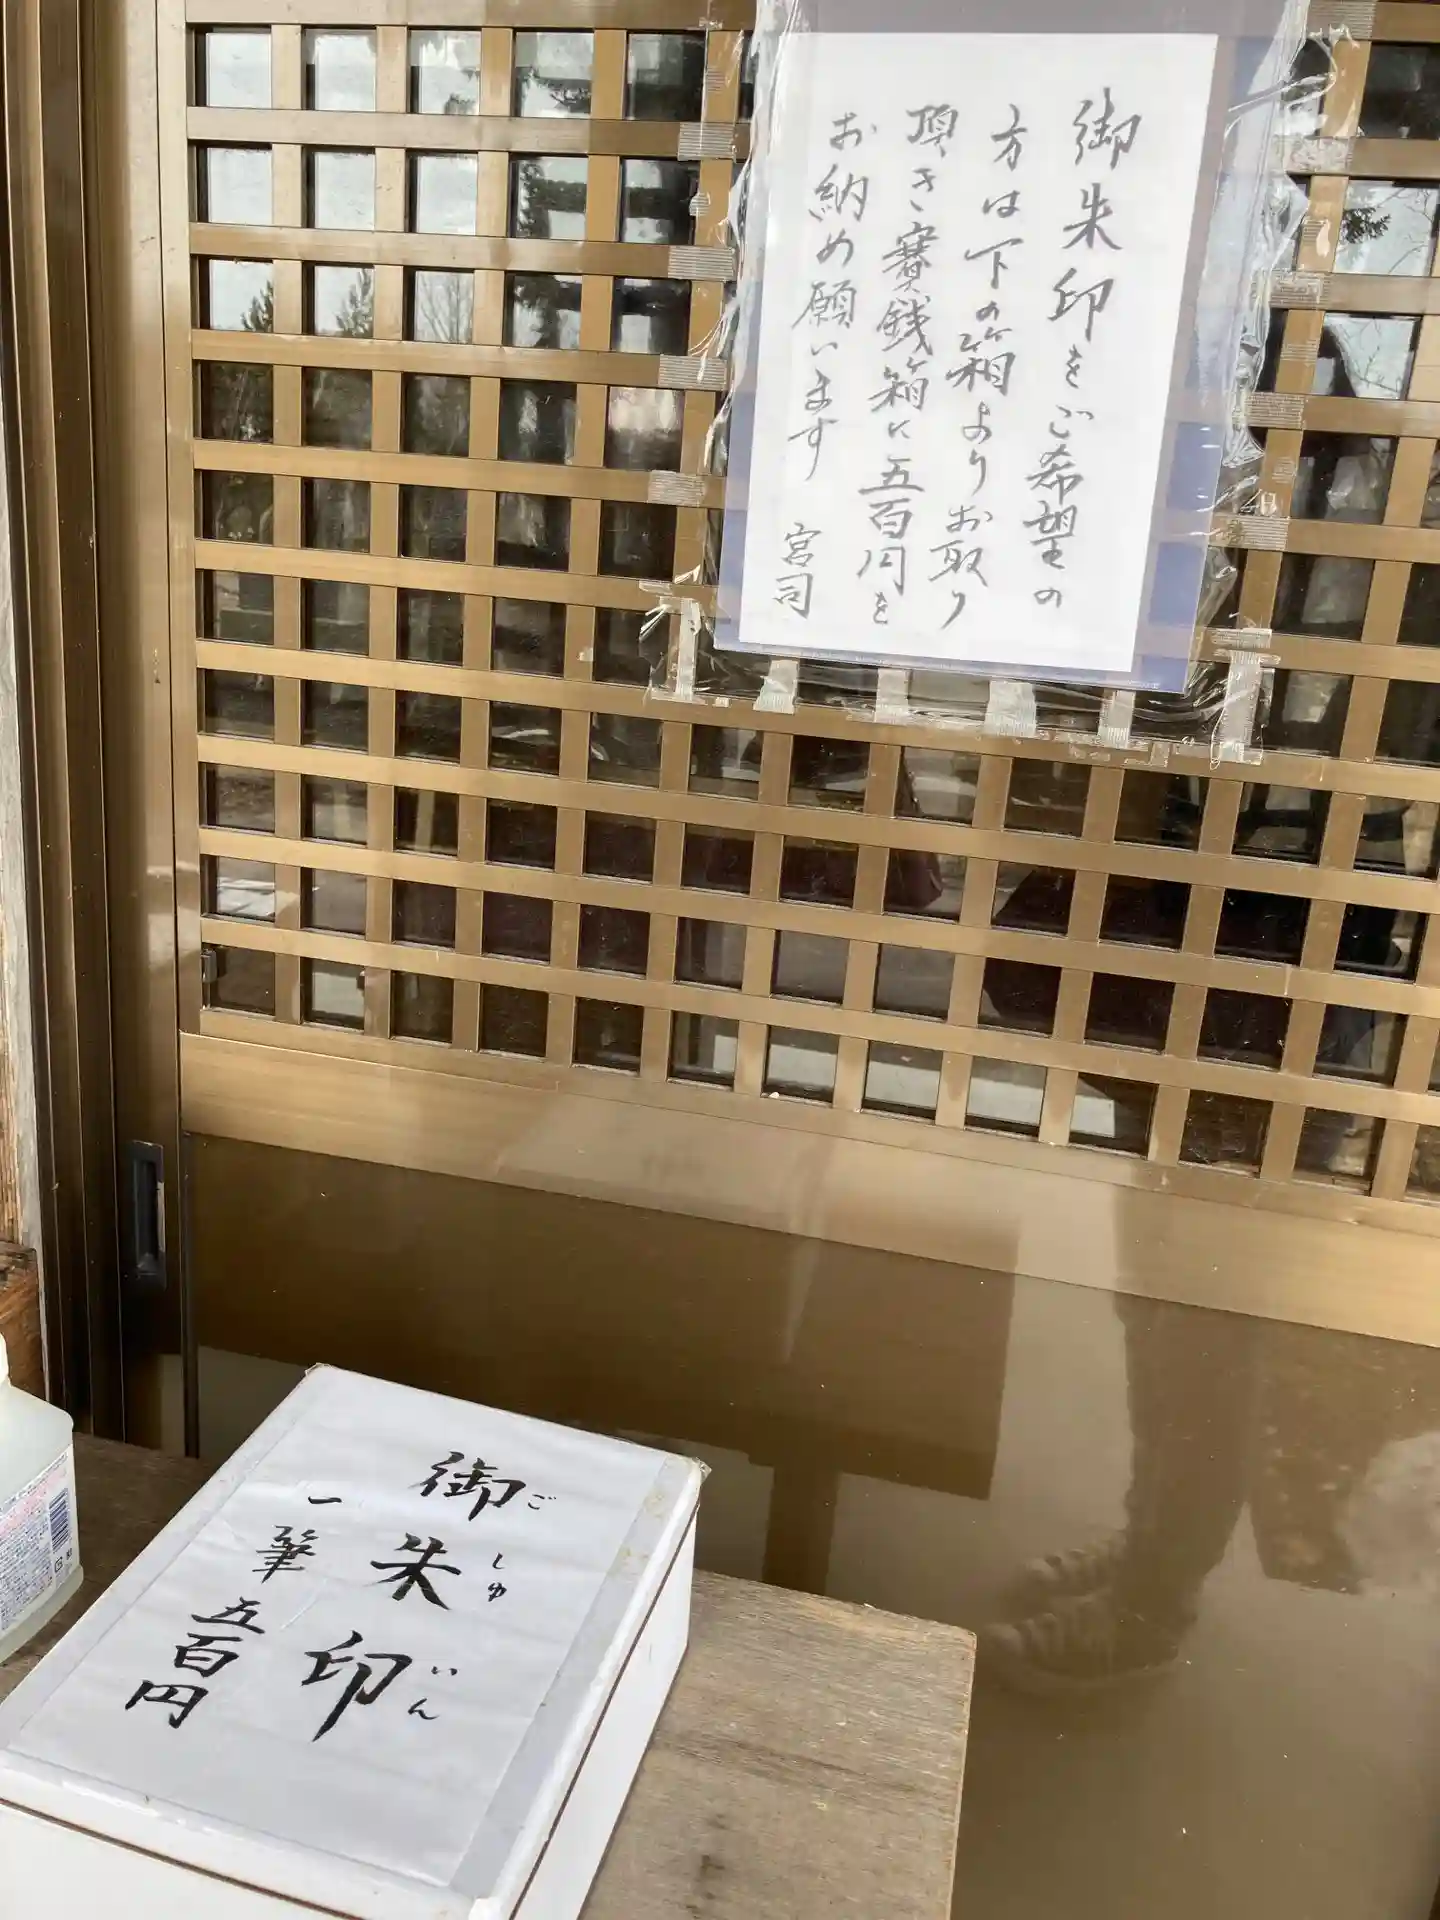 御朱印をご希望の
方は下の箱よりお取り
頂き賽銭箱に五百円を
お納め願います
宮司
御朱印
ごしゅいん
一筆五百円